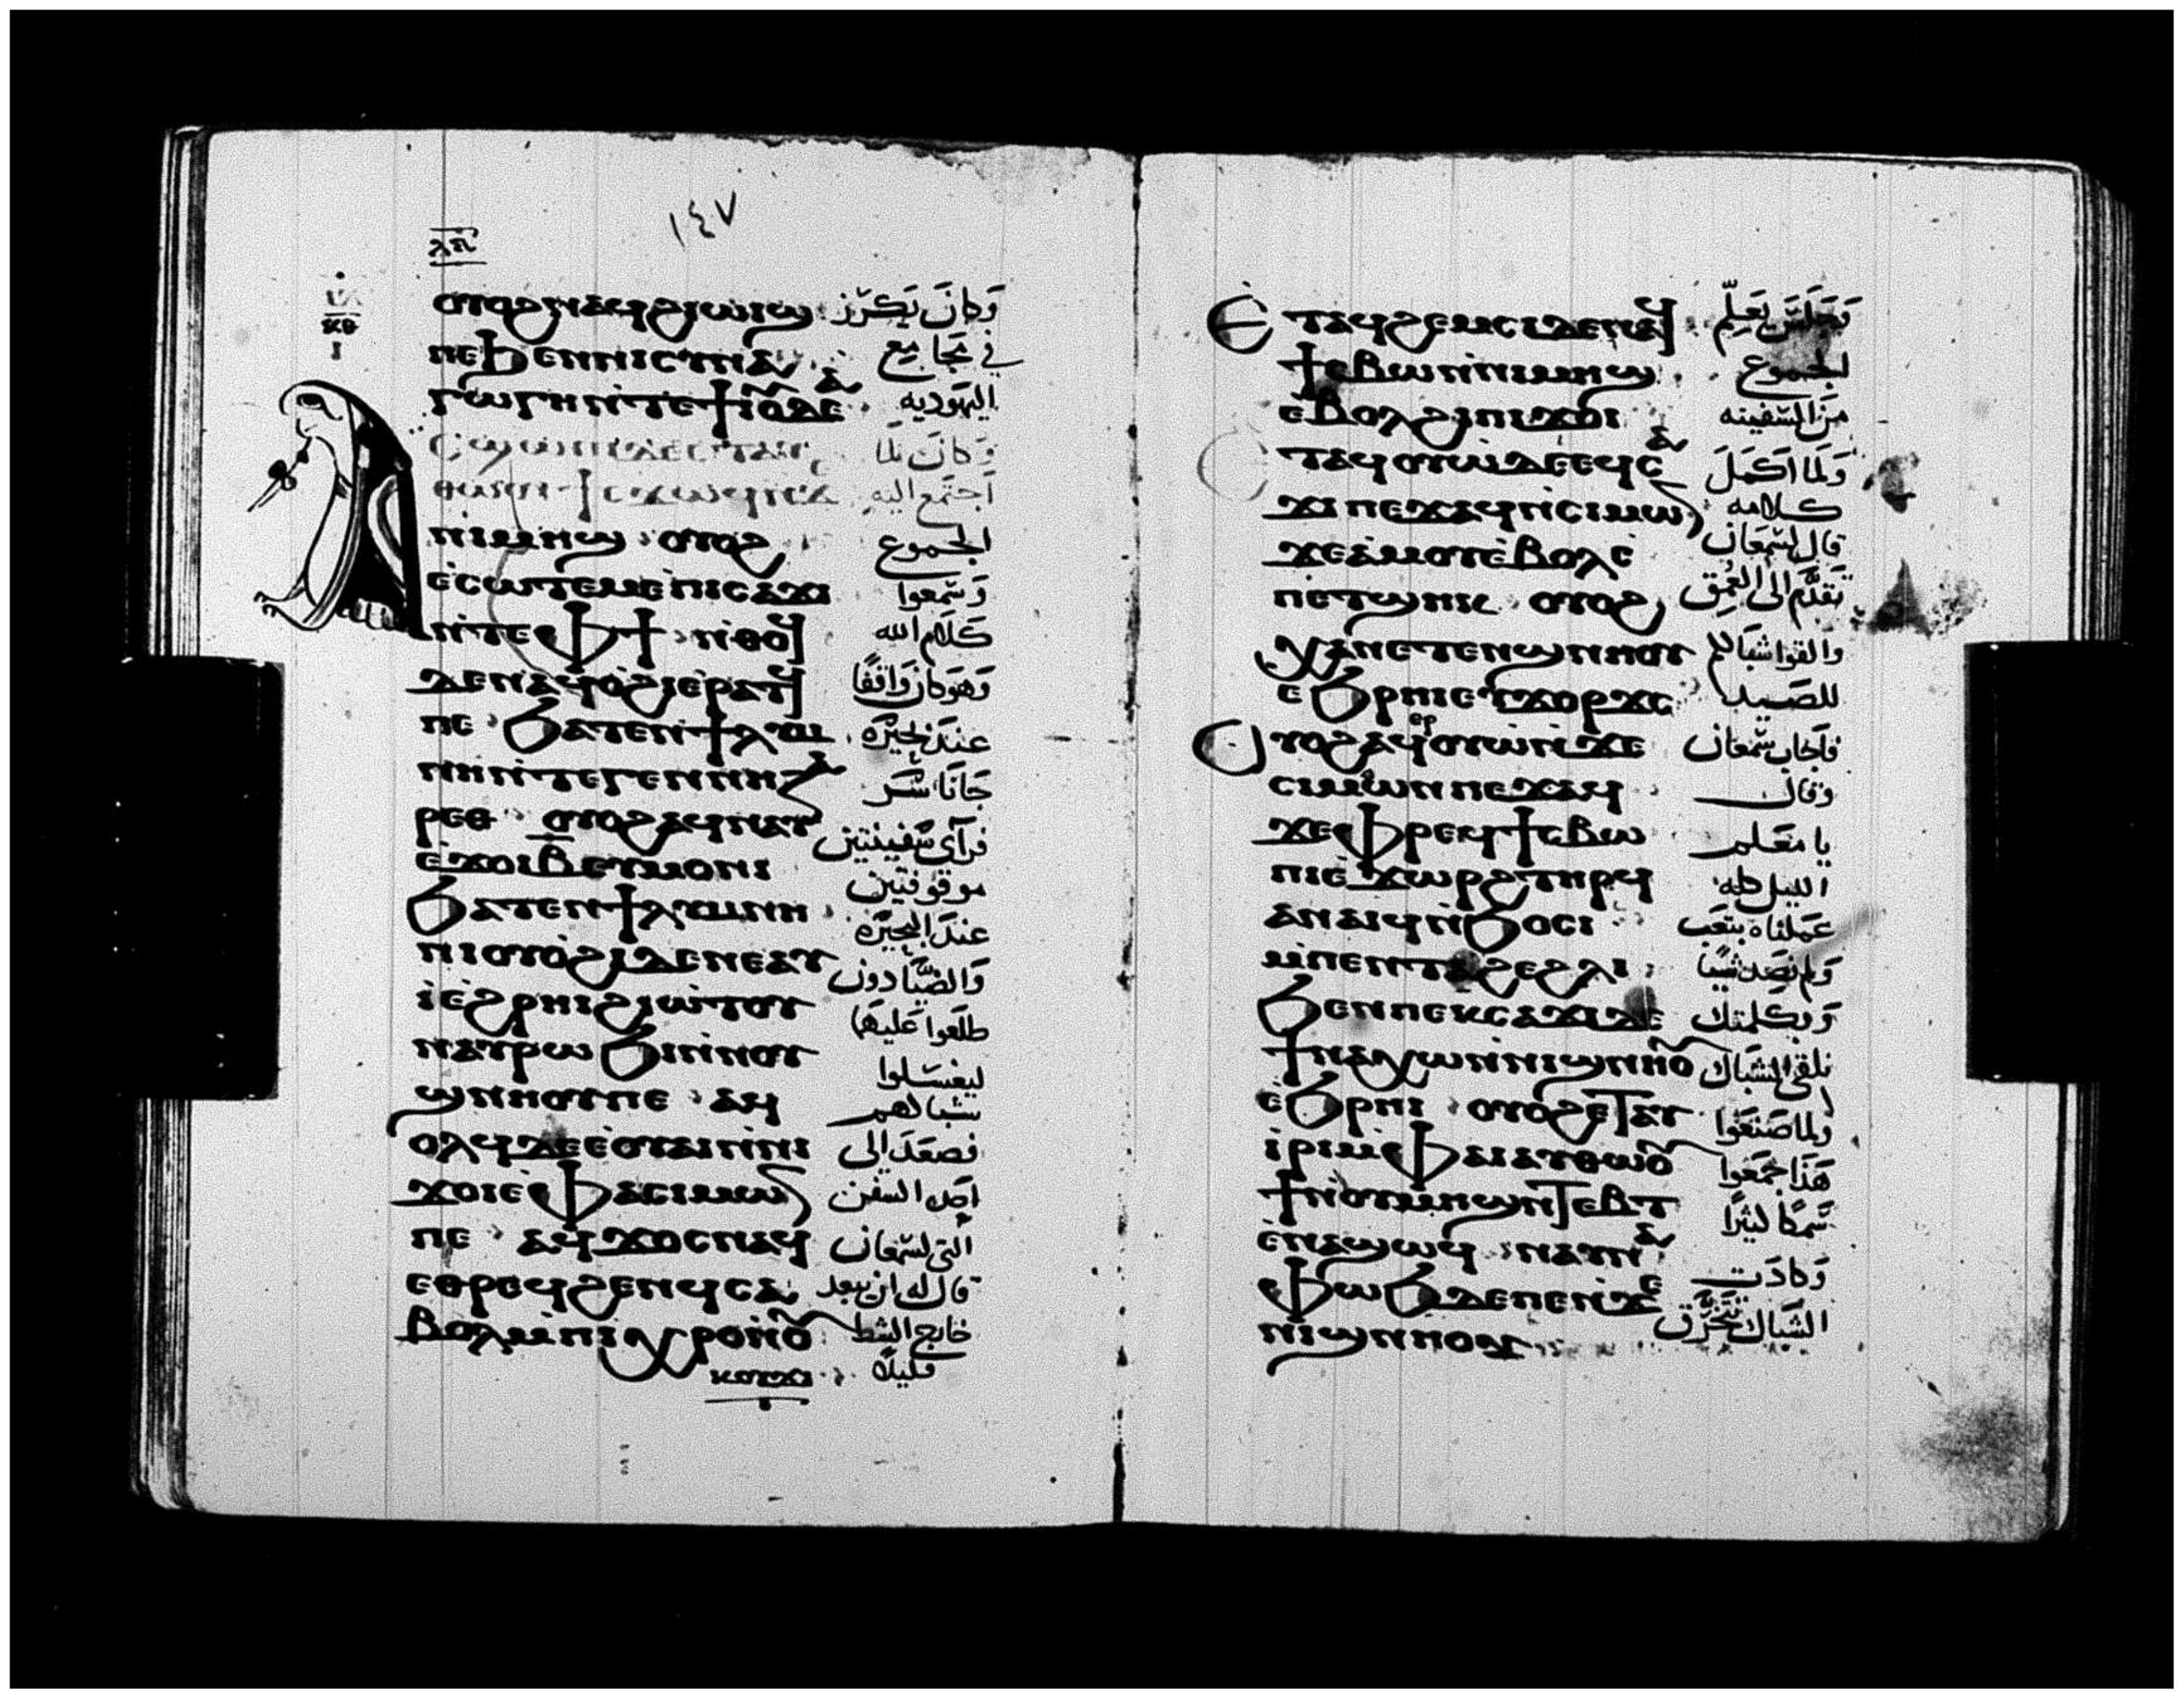 ١٤٧
ⲟⲩⲟϩ ⲛⲁϥϩⲓⲱⲓϣ وَكانَ يَكرز
ⲡⲉ ϧⲉⲛ ⲛⲓⲥⲩⲛⲁ في مجامِع
ⲅⲱⲅⲏ ⲛ̀ⲧⲉ ϯⲓⲟⲩⲇⲉⲁ اليَهوديه
وَكانَ لمّا
اَجتمع اليه
ⲡⲓⲙⲏϣ ⲟⲩⲟϩ الجموع
ⲉ̀ⲥⲱⲧⲉⲙ ⲉ̀ⲡⲓⲥⲁϫⲓ وَسَمعوا
ⲛ̀ⲧⲉ ⲫϯ ⲛ̀ⲑⲟϥ كَلام الله
ⲇⲉ ⲛⲁϥⲟ̀ϩⲓ ⲉⲣⲁⲧϥ وَهوَكانَ وَاقفًا
ⲡⲉ ϧⲁⲧⲉⲛ ϯⲗⲩⲙ عندَ بُحَيْرَه
ⲛⲏ ⲛ̀ⲧⲉ ⲅⲉⲛⲛⲏⲥⲁ جَانَاشَر
ⲣⲉⲑ ⲟⲩⲟϩ ⲁϥⲛⲁⲩ فرآى سَفينتين
ⲉ̀ϫⲟⲓ ⲃ̅ ⲉⲩⲙⲟⲛⲓ موقوفتين
ϧⲁⲧⲉⲛ ϯⲗⲩⲙⲛⲏ عندَ البُحَيْرَه
ⲛⲓⲟⲩⲟ̀ϩⲓ ⲇⲉ ⲛⲉⲁⲩ وَالصَيَّادون
ⲓ̀ ⲉ̀ϩⲣⲏⲓ ϩⲓⲱ̀ⲧⲟⲩ طلَعوا عَليهَا
ⲛⲁⲩⲣⲱϧⲓ ⲛ̀ⲛⲟⲩ ليغسَلوا
ϣⲛⲏⲟⲩ ⲡⲉ ⲁϥ شباكهم
ⲟⲗϥ ⲇⲉ ⲉ̀ⲟⲩⲁⲓ ⲛ̀ⲛⲓ فصَعَدَ الى
ϫⲟⲓ ⲉ̀ⲫⲁ ⲥⲓⲙⲱⲛ احَد السفن
ⲡⲉ ⲁϥϫⲟⲥ ⲛⲁϥ التى لشمعان
ⲉⲑⲣⲉϥϩⲉⲛϥ ⲥⲁ قال له ان يبعد
ⲃⲟⲗ ⲙ̀ⲡⲓⲭⲣⲟ ⲛ̀ⲟⲩ خارج الشط
ⲕⲟⲩϫⲓ قليلاً
Ⲉⲧⲁϥϩⲉⲙⲥⲓ ⲇⲉ ⲛⲁϥ وَجَلَسَ يَعَلِّم
ϯⲥⲃⲱ ⲛ̀ⲛⲓⲙⲏϣ الجموع
ⲉⲃⲟⲗ ϩⲓ ⲡⲓϫⲟⲓ منَ السَّفينه
Ⲉⲧⲁϥⲟⲩⲱ ⲇⲉ ⲉϥⲥⲁ وَلمَا اَكمَلَ
ϫⲓ ⲡⲉϫⲁϥ ⲛ̀ⲥⲓⲙⲱⲛ كلامه
ϫⲉ ⲁ̀ⲙⲟⲩ ⲉ̀ⲃⲟⲗ ⲉ̀ قال لشمعان
ⲡⲉⲧϣⲏⲕ ⲟⲩⲟϩ تقدَّم الى العُمق
ⲭⲁ ⲛⲉⲧⲉⲛϣⲛⲏⲟⲩ وَالقوا شبَاككم
ⲉϧⲣⲏⲓ ⲉⲩϫⲟⲣϫⲥ للصَيد
Ⲟⲩⲟϩ ⲁϥⲉⲣⲟⲩⲱ ⲛ̀ϫⲉ فاَجاب شمعان
ⲥⲓⲙⲱⲛ ⲡⲉϫⲁϥ وقال
ϫⲉ ⲫⲣⲉϥϯⲥⲃⲱ يا مَعَلم
ⲡⲓⲉ̀ϫⲱⲣϩ ⲧⲏⲣϥ الليل كله
ⲁⲛⲁⲓϥ ⲛ̀ϧⲟⲥⲓ عَملناه بتعَب
ⲙ̀ⲡⲉⲛⲧⲁϩⲉ ϩⲗⲓ وَلم نصَد شَيًا
ϧⲉⲛ ⲡⲉⲕⲥⲁϫⲓ ⲇⲉ وَبكلمتك
ϯⲛⲁⲭⲱ ⲛ̀ⲛⲓϣⲛⲏⲟⲩ نلقى الشبَاك
ⲉ̀ϧⲣⲏⲓ ⲟⲩⲟϩ ⲉⲧⲁⲩ ولمَا صَنعَوا
ⲓ̀ⲣⲓ ⲙ̀ⲫⲁⲓ ⲁⲩⲑⲱⲟⲩ هَذا جمَعَوا
ϯ ⲛ̀ⲟⲩⲙⲏϣ ⲛ̀ⲧⲉⲃⲧ سَمكًا كثيرًا
ⲉ̀ⲛⲁϣⲱϥ ⲛⲁⲩⲛⲁ وَكادَت
ⲫⲱϧ ⲇⲉ ⲡⲉ ⲛ̀ϫⲉ الشبَاك تتخَرَّق
ⲛⲓϣⲛⲏⲟⲩ